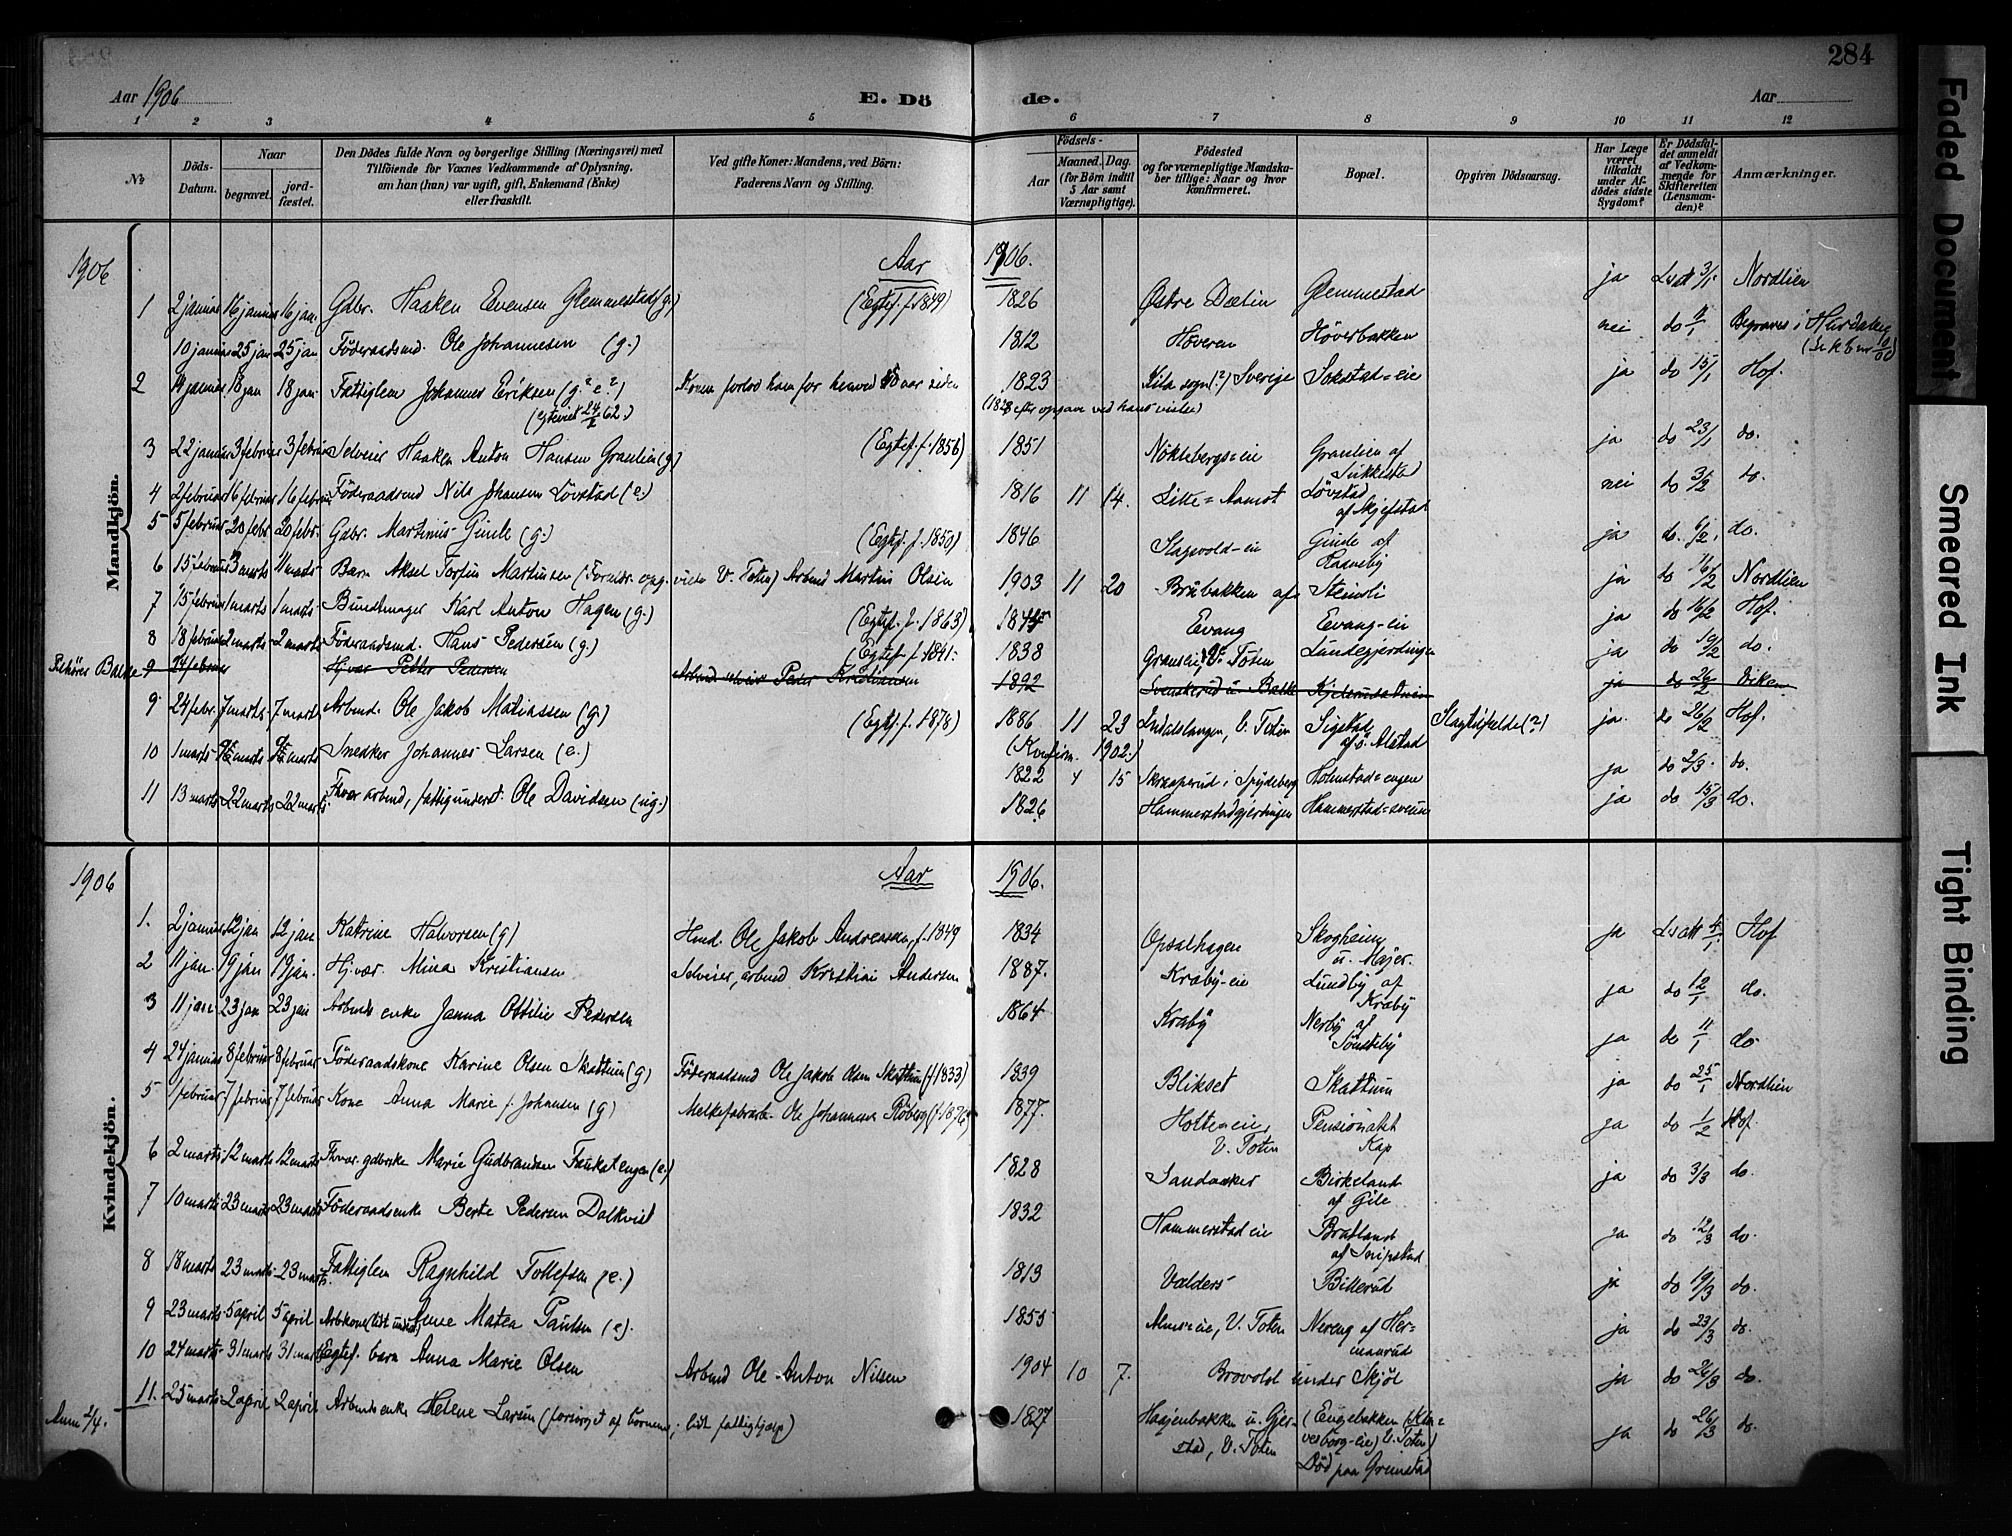 284
Aar 1906 E. Dö de. Aar
1 2 3 4 5 6 7 8 9 10 11 12
№
Döds-Datum.
Naar
begravet.
jord-fæstet.
Den Dödes fulde Navn og borgerlige Stilling (Næringsvei) med
Tilföiende for Voxnes Vedkommende af Oplysning,
om han (hun) var ugift, gift, Enkemand (Enke)
eller fraskilt.
Ved gifte Koner: Mandens, ved Börn:
Faderens Navn og Stilling.
Födsels-
Aar
Maaned. Dag.
(for Börn indtil
5 Aar samt
Værnepligtige).
Födested
og for værnepligtige Mandska-
ber tillige: Naar og hvor
konfirmeret.
Bopæl.
Opgiven Dödsaarsag.
Har Læge
været
tilkaldt
under Af-
dödes sidste
Sygdom?
Er Dödsfal-
det anmeldt
af Vedkom-
mende for
Skifteretten
(Lensman-
den)?
Anmærkninger.
Mandkjön.
1906 Aar 1906.
1 2 januar 16 januar 16 jan. Gdbr. Haaken Evensen Glemmestad (g.) (Egtef. f. 1849) 1826 Östre Dælin Glemmestad ja Lsatt 3/1 Nordlien
10 januar 25 jan 25 jan Föderaadsmd. Ole Johannesen (g.) 1812 Höveren Höverbakken nei do 11/1 Begraves i Hurdalen
2 14 januar 18 jan 18 jan. Fattiglem Johannes Eriksen (g.? e.?) Konen forlod ham for henved 50 aar siden 1823 Kila sogn (?) Sverige Sokstad-eie ja do 15/1 Hof.
(1828 efter opgave ved hans vielse)
3 22 januar 3 februar 3 februar Selveier Haaken Anton Hansen Graulien (g) (Egtef. f. 1856) 1851 Nöklebergs-eie Graulien af Sukkestad ja do 23/1 do.
4 2 februar 16 februar 16 februar Föderaadsmd Nils Johansen Lövstad (e.) 1816 11 14. Lille-Aamot Lövstad af Skjefstad nei do 3/2 do.
5 5 februar 20 febr. 20 febr. Gdbr. Martinus Ginle (g.) (Egtef. f. 1850) 1846 Stagvold-eie Ginle af Raaneby ja do. 6/2 do.
6 15 februar 3 marts 11 marts Barn Aksel Torfin Martinsen (Foreldr. opg. viede V. Toten) Arbmd Martin Olsen 1903 11 20 Brubakken af Steinli ja do 16/2 Nordlien
7 15 februar 1 marts 1 marts Buntmager Karl Anton Hagen (g.) (Egtef. f. 1863) 1844 Evang Evang-eie ja do 16/2 Hof.
8 18 februar 2 marts 2 marts Föderaadsmd. Hans Pedersen (g.) (Egtef. f. 1841. 1838 Graulien, V. Toten Lundegjerdingen ja do 19/2 do.
9 24 februar Hjvær. Petter Pedersen Arbmd selveier Peder Kristiansen 1892 Svenskerud u. Balke ja do 26/2 Viken
9 24 febr. 7 marts 7 marts Arbmd. Ole Jakob Matiassen (g.) (Egtf. f. 1878) 1886 11 23 Lindalslangen, V. Toten Sigstad af ö. Alstad Slagtilfælde (?) ja do 26/2 Hof.
(Konfirm. 1902.)
10 1 marts Snedker Johannes Larsen (e.) 1822 4 15 Skraaperud i Spydeberg Holmstad-engen ja do 2/3 do.
11 13 marts 22 marts 22 marts Fhvær arbmd, fattigunderst. Ole Davidsen (ug.) 1826 Hammerstadgjerdingen Hammerstad-sveen ja do 15/3 do.
Kvindekjön.
1906 Aar 1906.
1. 2 januar 12 jan 12 jan. Katrine Halvorsen (g) Hmd. Ole Jakob Andreassen, f. 1849 1834 Opsalhagen Skogheim u. Majer. ja Lsatt 4/1. Hof
2 11 jan. 19 jan 19 jan. Hj.vær. Mina Kristiansen Selveier, arbmd Kristian Andersen 1887. Kraby-eie Lundby af Kraby ja do 12/1 do.
3 11 jan 23 jan 23 jan Arbmds enke Janna Ottilie Pedersen 1864 Kraby Nerby af Sönsteby ja do 11/1 do
4 24 januar 8 februar 8 februar Föderaadskone Karine Olsen Skattum (g) Föderaadsmd Ole Jakob Olsen Skattum (f. 1833) 1839 Blikset Skattum ja do 25/1 Nordlien
5 1 februar 7 februar 7 februar Kone Anna Marie f. Johansen (g) Melkefabrarb. Ole Johannes Roberg (f. 1876) 1877. Holteneie, V. Toten Pensionatet Kap ja do 1/2 Hof
6 2 marts 12 marts 12 marts Fhvær. gdbrske Marie Gudbrandsen Faukalengen (e.) 1828 Sandaaker Birkeland af Gile ja do 3/3 do.
7 10 marts 23 marts 23 marts Föderaadsenke Berte Pedersen Dalkvist 1832 Hammerstad eie Bratland af Snipstad ja do 12/3 do.
8 18 marts 23 marts 23 marts Fattiglem Ragnhild Tollefsen (e.) 1813 Valders Billerud ja do 19/3 do.
9 23 marts 5 april 5 april Arbkone Anne Matea Paulsen (e). 1855 Almes-eie, V. Toten Nereng af Her-manrud ja do 23/3 do.
10 24 marts 31 marts 31 marts Egtef. barn Anna Marie Olsen Arbmd Ole Anton Nilsen 1904 10 7. Brovold under Skjöl ja do 26/3 do.
11. 25 marts 2 april 2 april Arbmds enke Helene Larsen (forsörget af börnene; lidt fattighjælp) 1827 Haajenbakken u. Gjer-stad, V. Toten (Engebakken (Klu-verborg-eie) V. Toten) Död paa Grimstad ja do 26/3 do.
Faded Document
Smeared Ink
Tight Binding